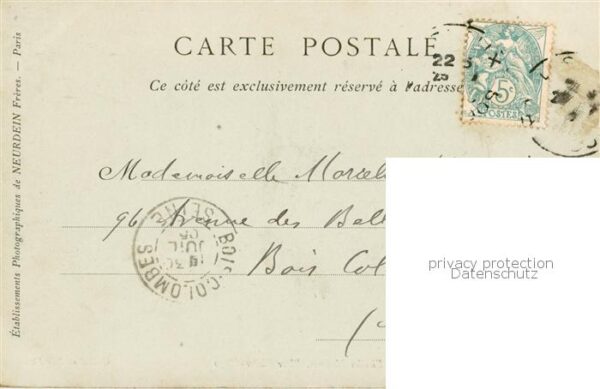 CARTE POSTALE
Ce côté est exclusivement réservé à l'adresse
5c
POSTES
22
25
Mademoiselle Marcel
96 Avenue des Bell
Bois Col
BOIS-COLOMBES
SEINE
30
JUIL
05
Établissements Photographiques de NEURDEIN Frères. — Paris
privacy protection
Datenschutz